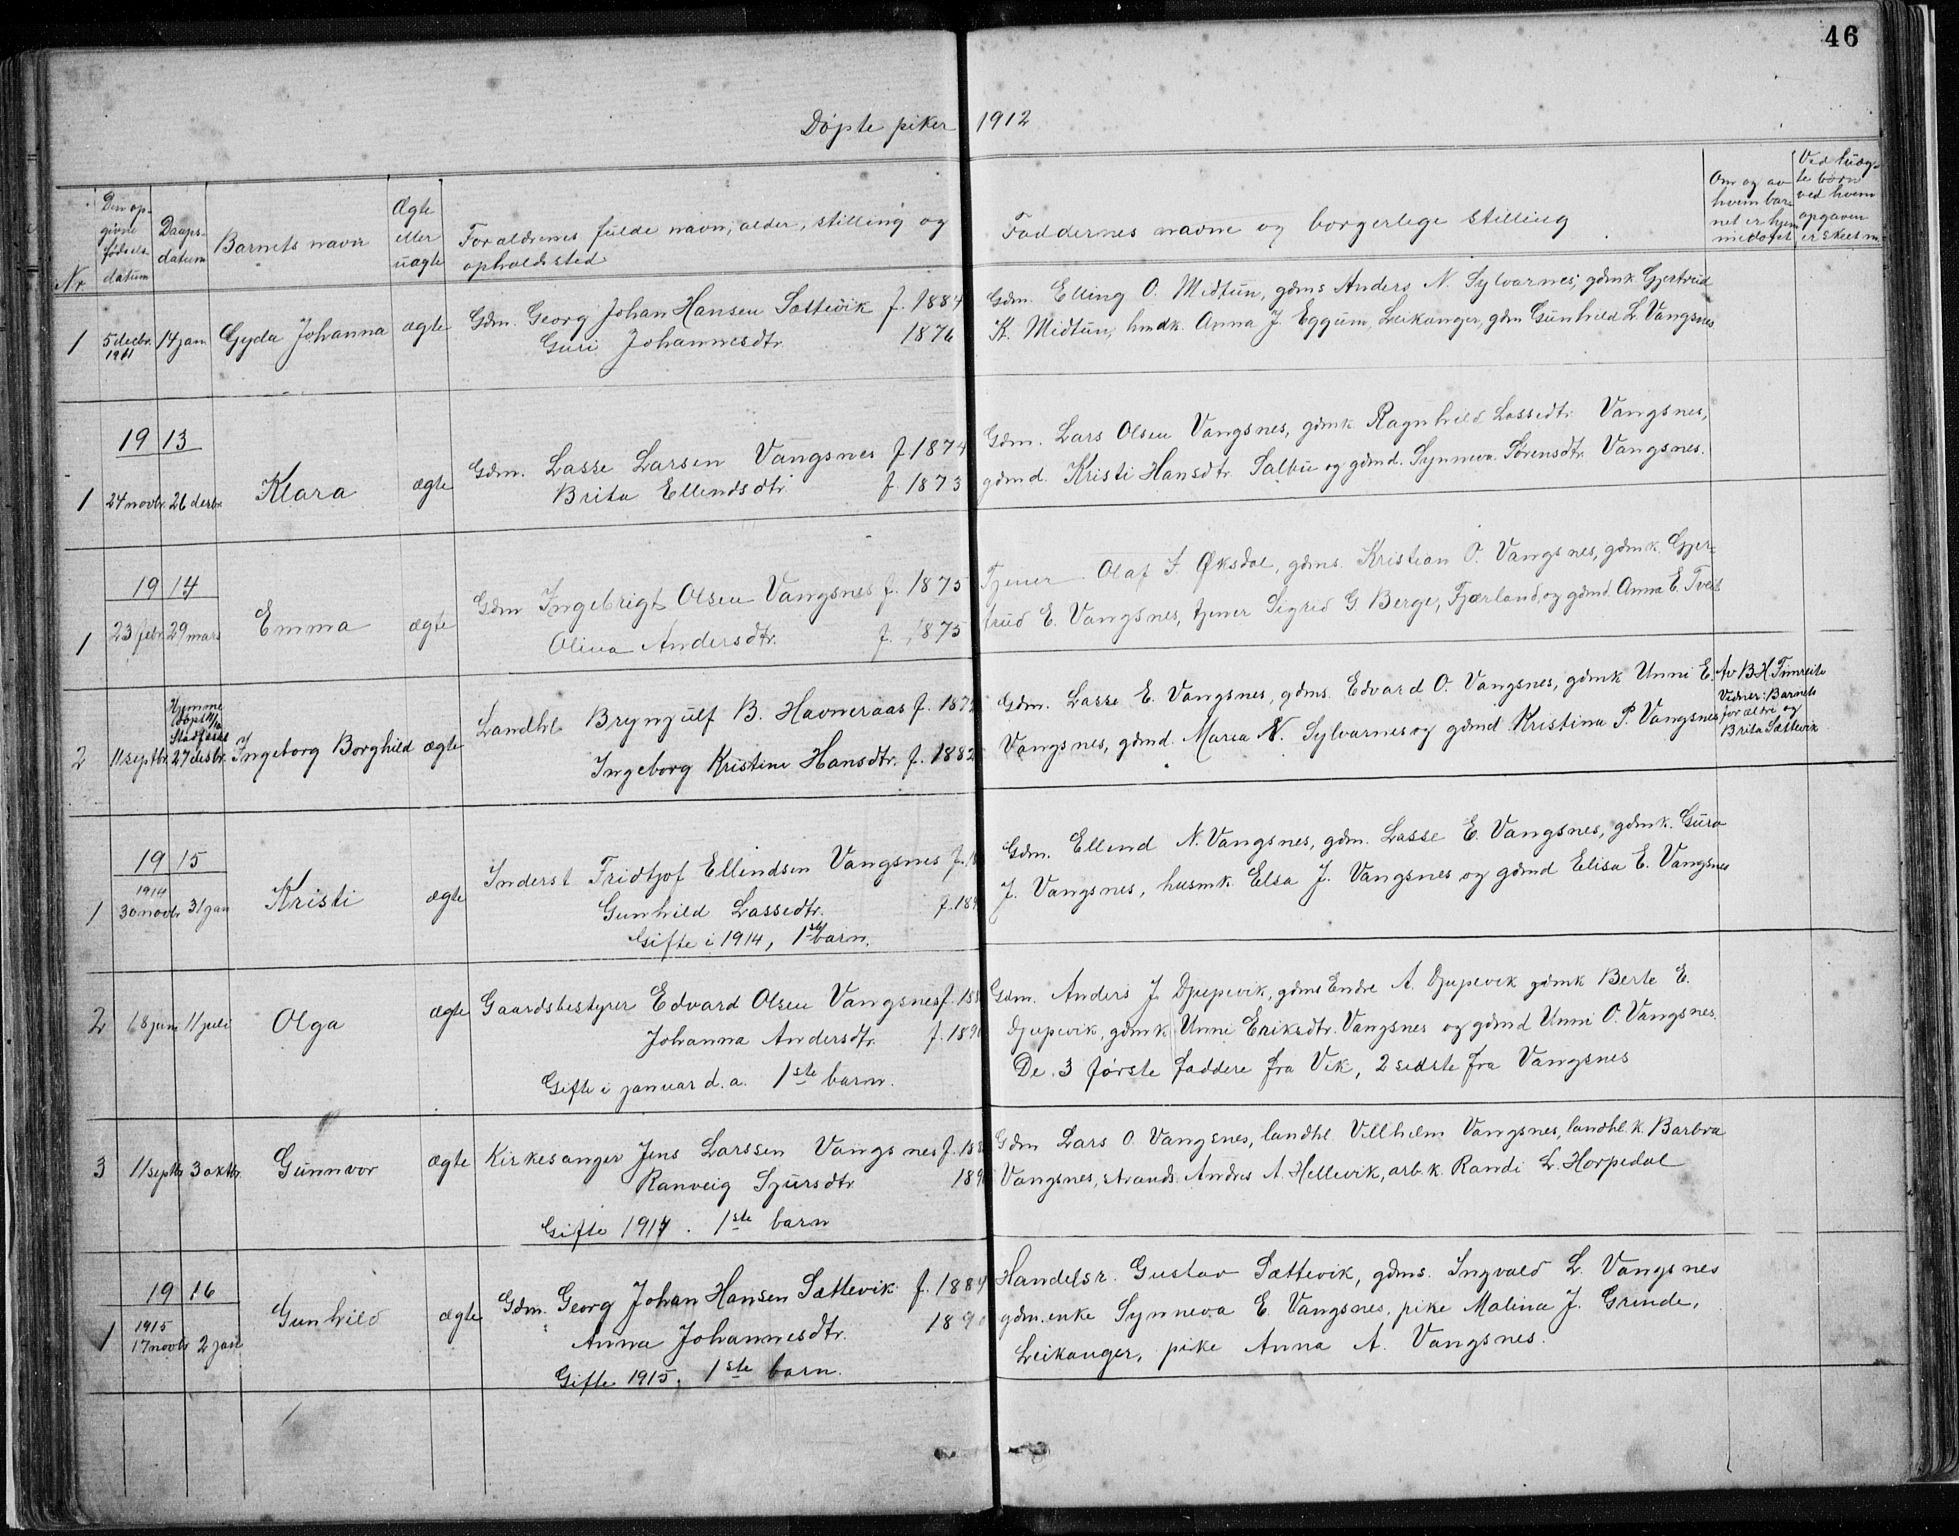 46
Døpte piker 1912
Nr.
Den op-
givne
fødsels-
datum
Daaps-
datum
Barnets navn
Ægte
eller
uægte
Forældrenes fulde navn, alder, stilling og
opholdssted
Faddernes navne og borgerlege stilling
Om og av
hvem bar-
net er hjem
medøpt
Ved uæg-
te børn
ved hvem
opgaven
er skeet
1 5 decbr. 1911 14 jan Gyda Johanna ægte Gdm. Georg Johan Hansen Sættevik f. 1884
Guri Johannesdtr. 1876
Gdm. Elling O. Midtun, gdms Anders N. Sylvarnes, gdmk Gjertrud
K. Midtun, hmdk. Anna J. Eggum, Leikanger, gdm Gunhild L. Vangsnes
1913
1 24 novbr. 26 desbr. Klara ægte Gdm. Lasse Larsen Vangsnes f. 1874
Brita Ellendsdtr. f. 1873
Gdm. Lars Olsen Vangsnes, gdmk Ragnhild Lassedtr. Vangsnes,
gdmd. Kristi Hansdtr. Salbu og gdmd. Synneva Sørensdtr. Vangsnes.
1914
1 23 febr. 29 mars Emma ægte Gdm Ingebrigt Olsen Vangsnes f. 1875
Olina Andersdtr. f. 1875
Tjener Olaf I. Øksdal, gdms. Kristian O. Vangsnes, gdmk. Gjer-
trud E. Vangsnes, tjener Sigrid G. Berge, Fjærland, og gdmd. Anna E. Tveit
2 11 septbr. Hjemme
døpt
Stadfæst
27 desbr. Ingeborg Borghild ægte Landhl Brynjulf B. Havneraas f. 187
Ingeborg Kristine Hansdtr. f. 1882
Gdm. Lasse E. Vangsnes, gdms. Edvard O. Vangsnes, gdmk Unni E.
Vangsnes, gdmd. Maria N. Sylvarnes og gdmd Kristina P. Vangsnes
Av B. H. Finreite
Vidner: Barnets
forældre og
Brita Sættevik
1915
1 1914
30 novbr 31 jan Kristi ægte Inderst Fridtjof Ellendsen Vangsnes f. 18
Gunhild Lassedtr. f. 189
Gifte i 1914, 1ste barn.
Gdm. Ellend N. Vangsnes, gdm. Lasse E. Vangsnes, gdmk. Guro
J. Vangsnes, husmk. Elsa J. Vangsnes og gdmd Elisa E. Vangsnes
2 8 juni 11 juli Olga ægte Gaardsbestyrer Edvard Olsen Vangsnes f. 188
Johanna Andersdtr. f. 189
Gifte i januar d.a. 1ste barn.
Gdm. Anders J. Djupevik, gdms Endre A. Djupevik gdmk Berte E.
Djupevik, gdmk Unni Eriksdtr. Vangsnes og gdmd Unni O. Vangsnes.
De 3 første faddere fra Vik, 2 sidste fra Vangsnes
3 11 septbr 3 oktbr. Gunnvor ægte Kirkesanger Jens Larssen Vangsnes f. 188
Ranveig Sjursdtr 189
Gifte 1914. 1ste barn
Gdm Lars O. Vangsnes, landhl. Villhelm Vangsnes, landhl. k. Barbra
Vangsnes, strands. Andres A. Hellevik, arb. k. Randi L. Horpedal
1916
1 1915
17 novbr 2 jan Gunhild ægte Gdm. Georg Johan Hansen Sættevik f. 1884
Anna Johannesdtr. 189
Gifte 1915. 1ste barn.
Handelsr. Gustav Sættevik, gdms. Ingvald L. Vangsnes
gdm.enke Synneva E. Vangsnes, pike Malina J. Grinde,
Leikanger, pike Anna A. Vangsnes.